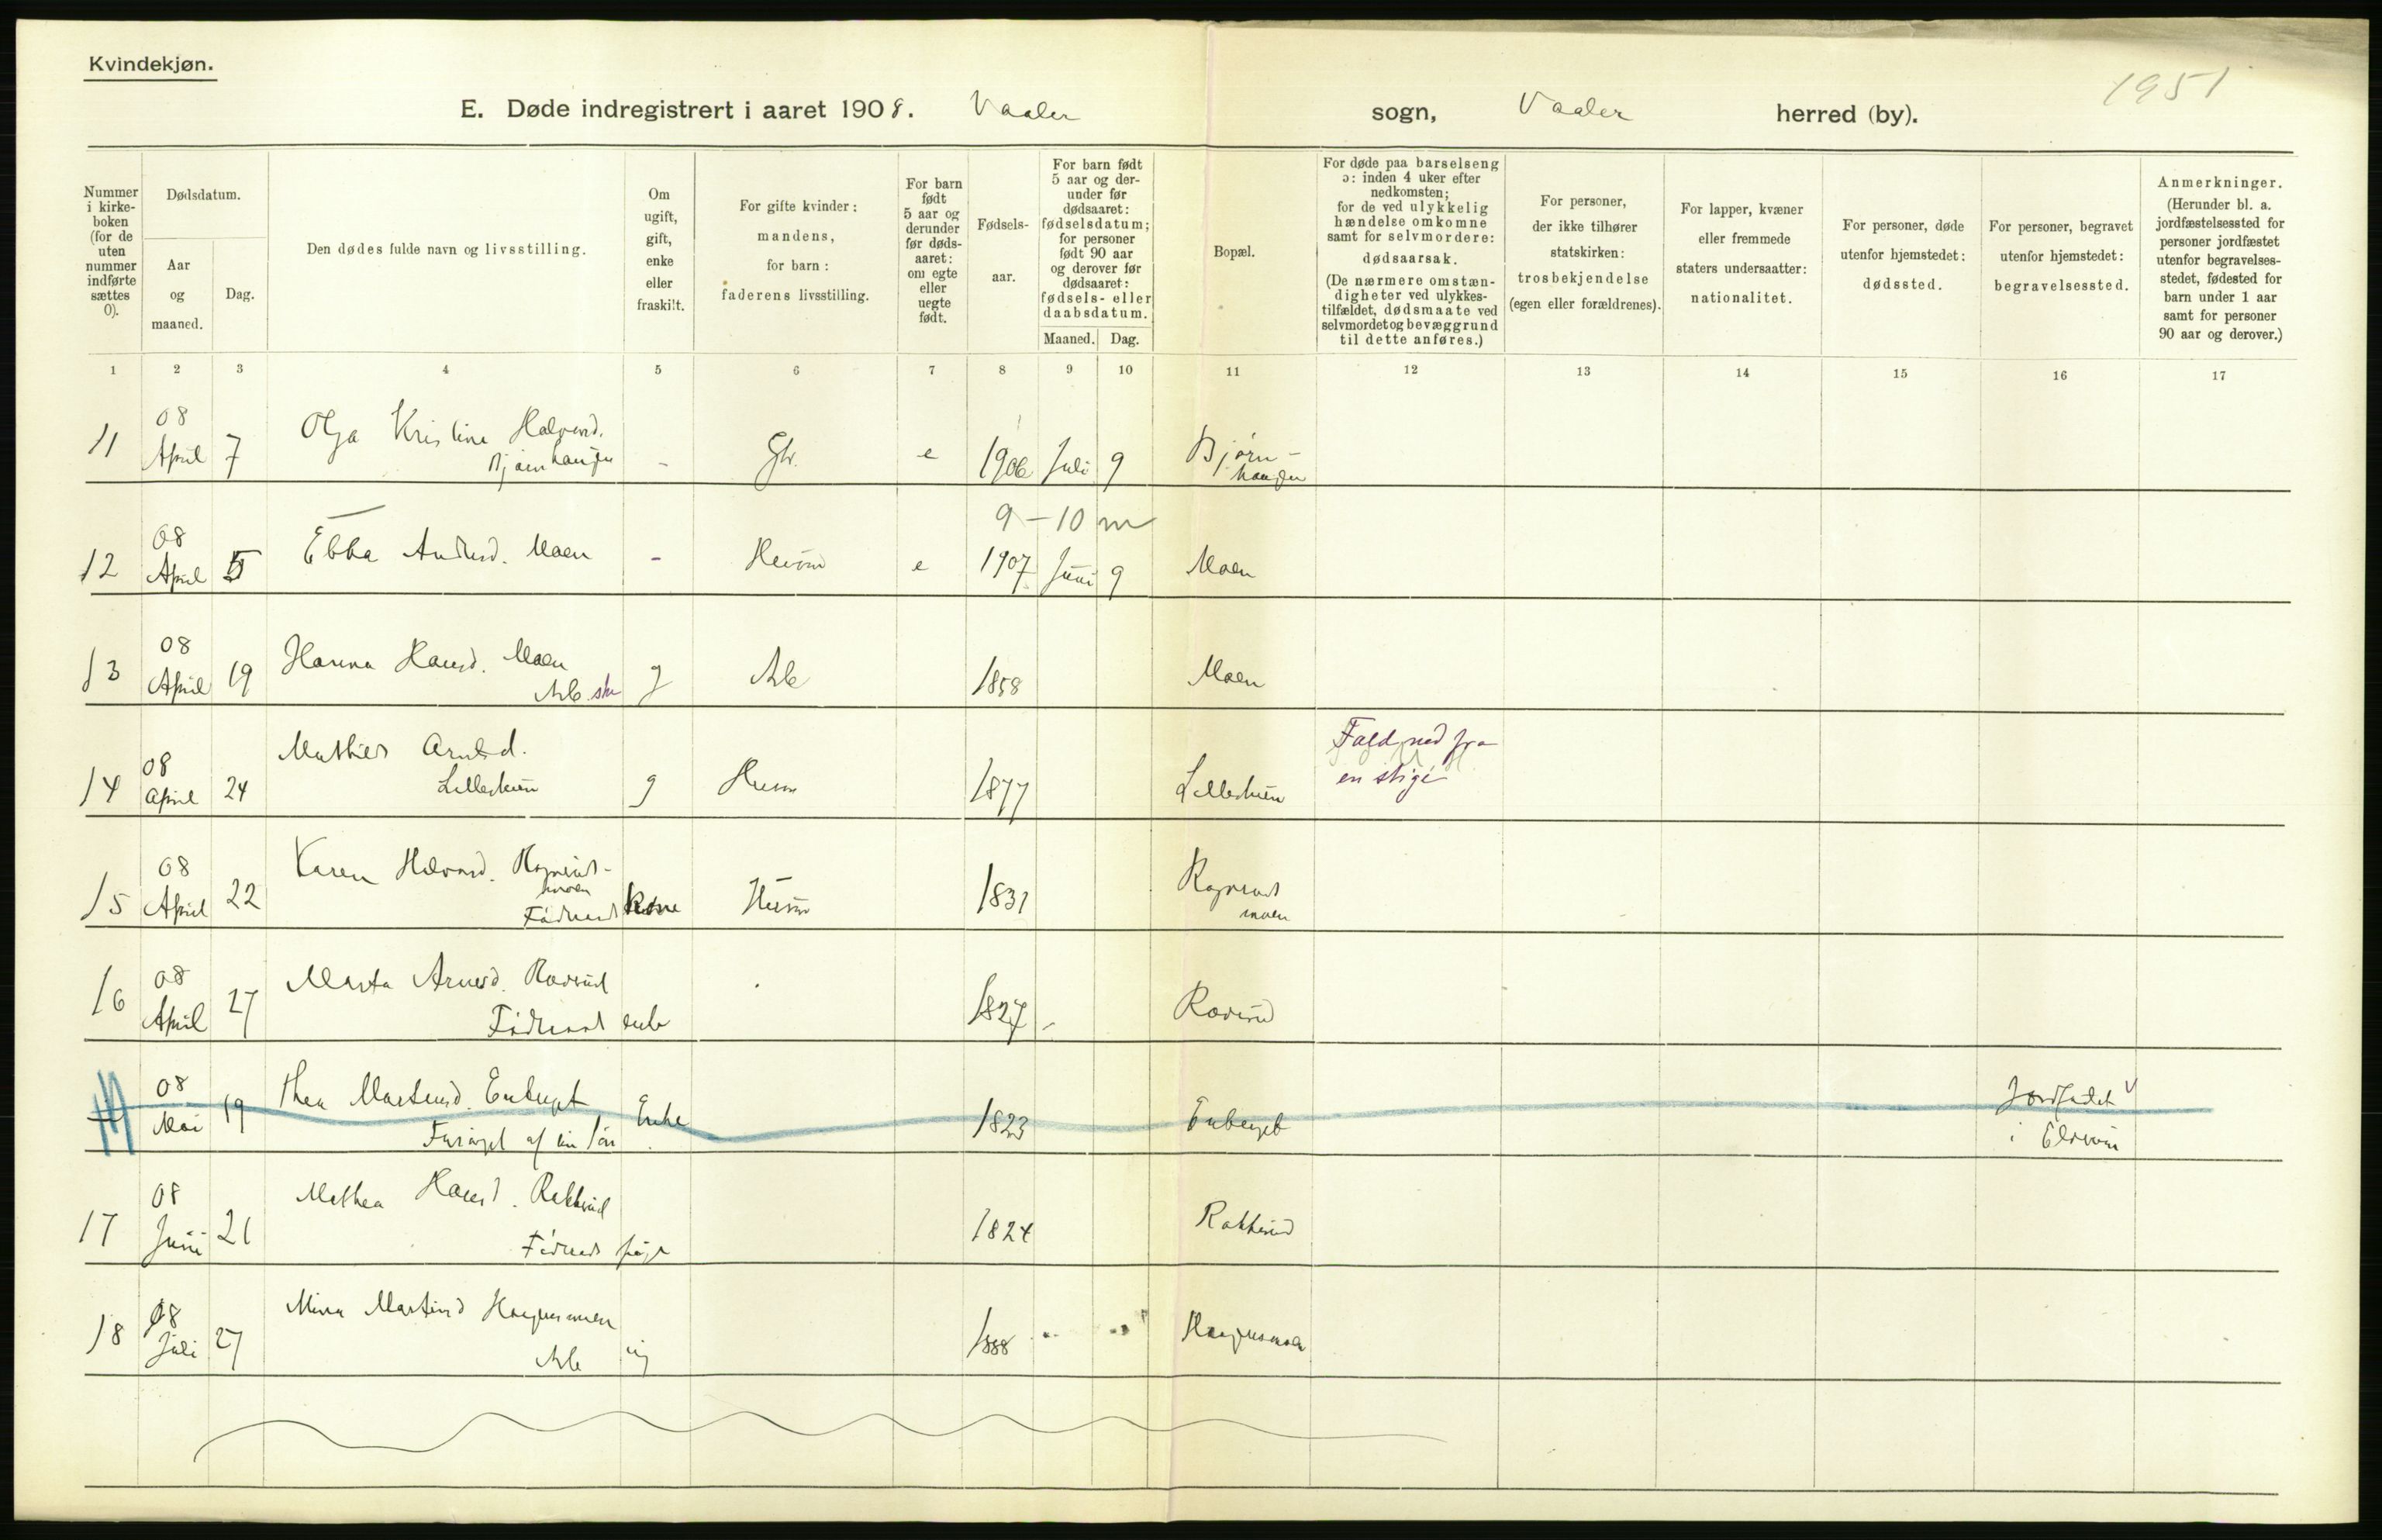 Kvindekjøn.
1951
E. Døde indregistrert i aaret 1908. Vaaler sogn, Vaaler herred (by).
Nummer i kirkeboken (for de uten nummer indførte sættes 0).
Dødsdatum.
Aar og maaned.
Dag.
Den dødes fulde navn og livsstilling.
Om ugift, gift, enke eller fraskilt.
For gifte kvinder: mandens, for barn: faderens livsstilling.
For barn født 5 aar og derunder før dødsaaret: om egte eller uegte født.
Fødselsaar.
For barn født 5 aar og derunder før dødsaaret: fødselsdatum; for personer født 90 aar og derover før dødsaaret: fødsels- eller daabsdatum.
Maaned. Dag.
Bopæl.
For døde paa barselseng ɔ: inden 4 uker efter nedkomsten; for de ved ulykkelig hændelse omkomne samt for selvmordere: dødsaarsak.
(De nærmere omstændigheter ved ulykkestilfældet, dødsmaate ved selvmordet og bevæggrund til dette anføres.)
For personer, der ikke tilhører statskirken: trosbekjendelse (egen eller forældrenes).
For lapper, kvæner eller fremmede staters undersaatter: nationalitet.
For personer, døde utenfor hjemstedet: dødssted.
For personer, begravet utenfor hjemstedet: begravelsessted.
Anmerkninger. (Herunder bl. a. jordfæstelsessted for personer jordfæstet utenfor begravelsesstedet, fødested for barn under 1 aar samt for personer 90 aar og derover.)
1 2 3 4 5 6 7 8 9 10 11 12 13 14 15 16 17
11 08 April 7 Olga Kristine Halvord. Bjørnhaugen - Gbr. e 1906 Juli 9 Bjørnhaugen
9-10 m
12 08 April 5 Ebba Andersd. Moen - Husm e 1907 Juni 9 Moen
13 08 April 19 Hanna Hansd. Moen Arb g Arb 1858 Moen
14 08 April 24 Mathies Arnesd. g Husm 1877
Fald ned fra
en stige
15 08 April 22 Karen Halvord. Kone Husm 1831 moen
16 08 April 27 Marta Arnesd. Føderaad enke 1827 -
08 Mai 19 Thea Martinsd. Enberget Enke 1823 Enberget
i Elverum
17 08 Juni 21 Mathea Hansd. Rakkerud Føderaads 1824 Rakkerud
18 08 Juli 27 Mina Martinsd Arb ug 1888